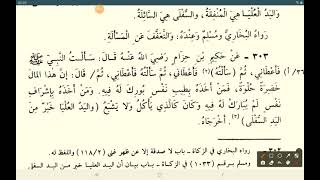 وَاليَدُ العُلْيَا هِيَ المُنْفِقَةُ، وَالسُّفْلَى هِيَ السَّائِلَةُ.
رَوَاهُ البُخَارِي وَمُسْلِم وَعِنْدَهُ: وَالتَّعَفُّفَ عَنِ المَسْأَلَةِ.
٣٠٣ ـ عَنْ حَكِيمِ بْنِ حِزَامٍ رَضِيَ اللهُ عَنْهُ قَالَ: سَأَلْتُ النَّبِيَّ ﷺ
فَأَعْطَانِي، ثُمَّ سَأَلْتُهُ فَأَعْطَانِي، ثُمَّ قَالَ: إِنَّ هٰذَا المَالَ
خَضِرَةٌ حُلْوَةٌ، فَمَنْ أَخَذَهُ بِطِيبِ نَفْسٍ بُورِكَ لَهُ فِيهِ. وَمَنْ أَخَذَهُ بِإِشْرَافِ
نَفْسٍ لَمْ يُبَارَكْ لَهُ فِيهِ وَكَانَ كَالَّذِي يَأْكُلُ وَلَا يَشْبَعُ وَاليَدُ العُلْيَا خَيْرٌ مِنَ
اليَدِ السُّفْلَى. أَخْرَجَاهُ.
رواه البخاري في الزكاة ـ باب لا صدقة إلا عن ظهر غنى (١١٨/٢) واللفظ له.
ومسلم برقم (١٠٣٣) في الزكاة ـ باب بيان أن اليد العليا خير من اليد السفلى